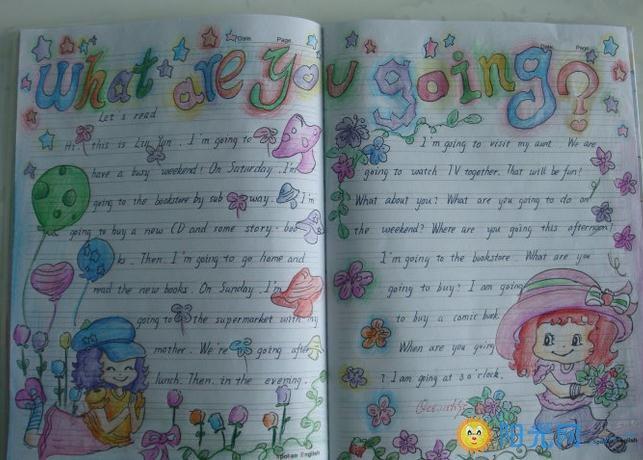 Date Page
What are you going?
Let s read
Hi, this is Liu Yun. I'm going to
have a busy weekend! On Saturday, I'm
going to the bookstore by sub way. I'm
going to buy a new CD and some story-boo
ks. Then. I'm going to go home and
read the new books. On Sunday. I'm
going to the supermarket with my
mother. We're going after
lunch. Then. in the evening.
Spoken English
Date Page
I'm going to visit my aunt. We are
going to watch TV together. That will be fun!
What about you? What are you going to do on
the weekend? Where are you going this afternoon?
I'm going to the bookstore. What are you
going to buy? I am going
to buy a comic book.
When are you going
? I am going at 3 o'clock.
English
阳光网